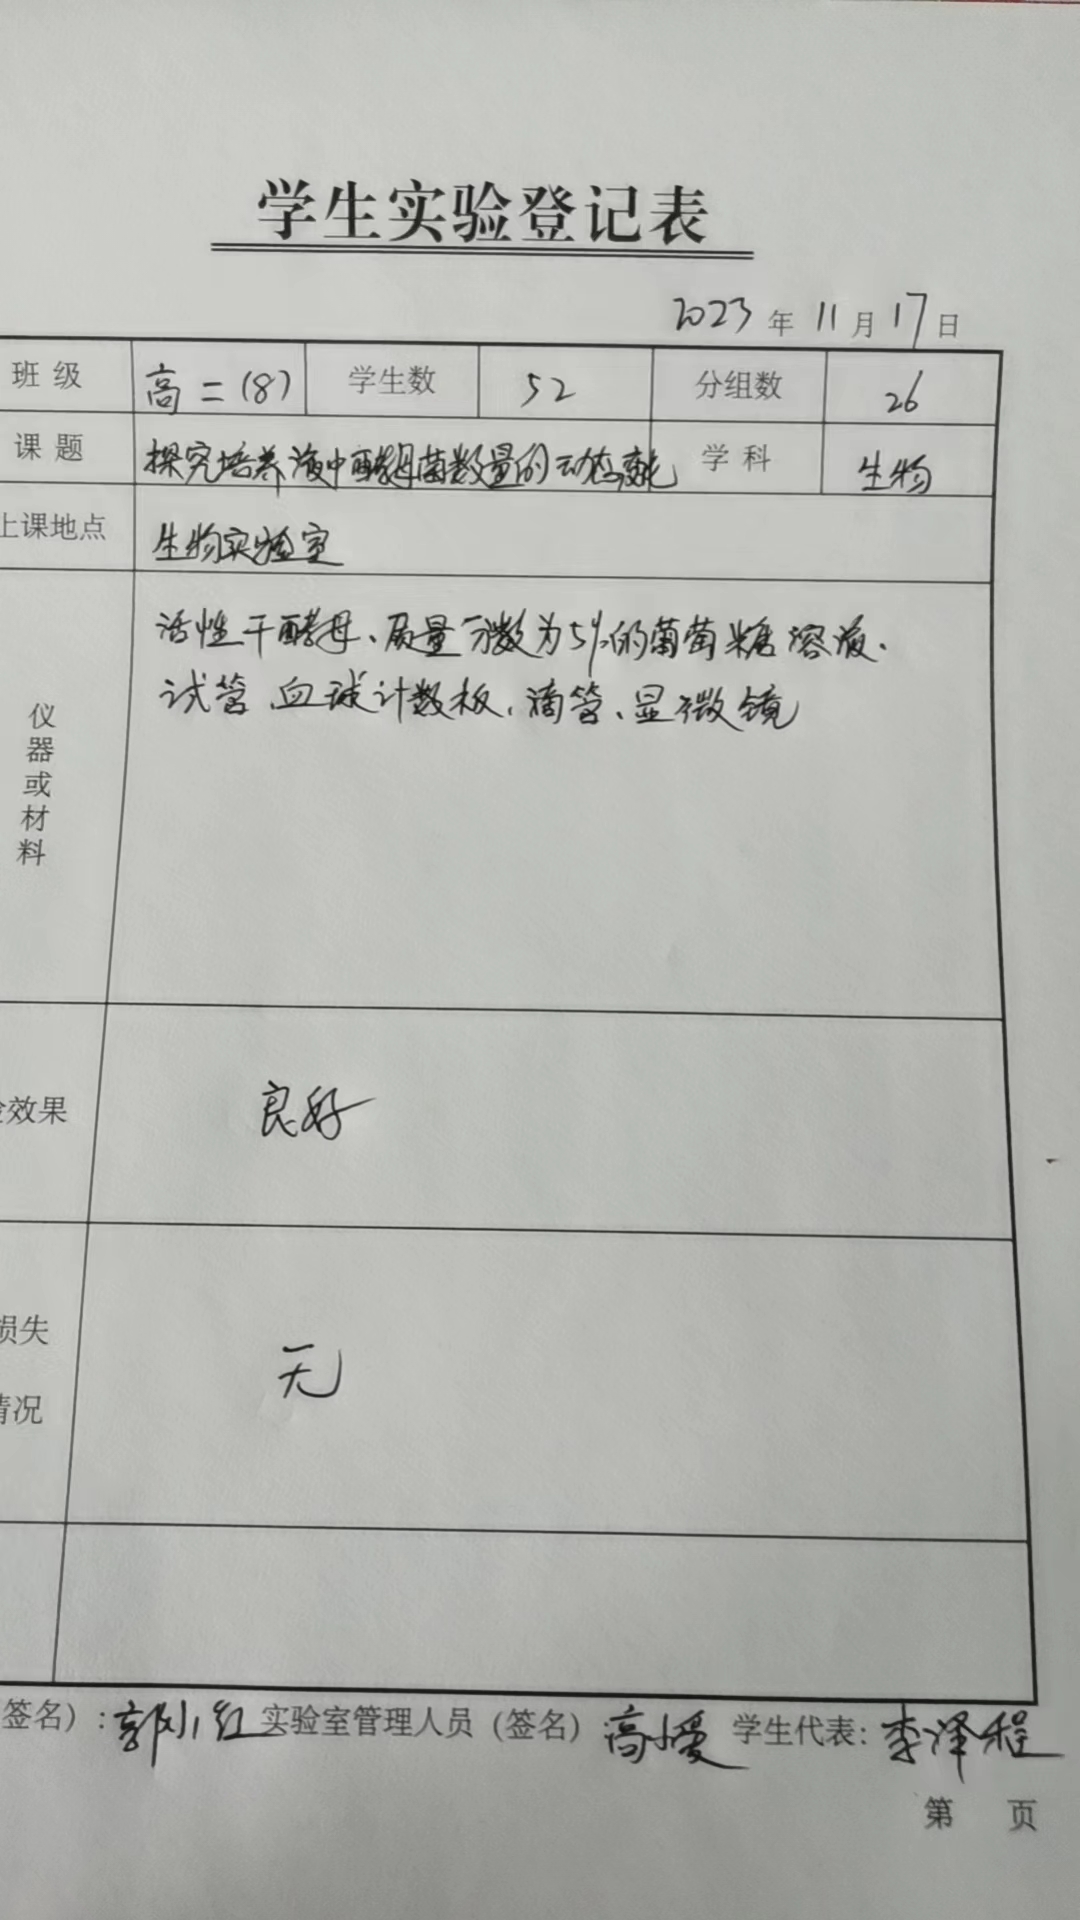 学生实验登记表
2023年11月17日
班级 高二(8) 学生数 52 分组数 26
课题 探究培养液中酵母菌数量的动态变化 学科 生物
上课地点 生物实验室
仪器或材料
活性干酵母、质量分数为5%的葡萄糖溶液、
试管、血球计数板、滴管、显微镜
效果 良好
损失
情况
无
签名）：郭小红 实验室管理人员（签名）高小爱 学生代表：李泽程
第 页